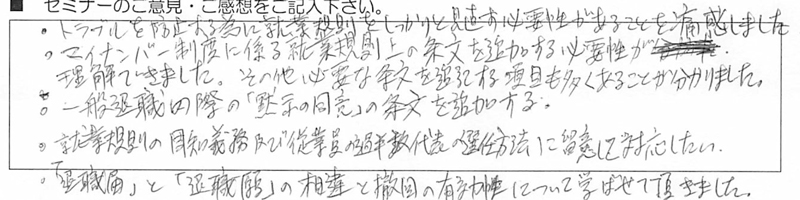 ■ セミナーのご意見・ご感想をご記入下さい。
・トラブルを防止する為に就業規則をしっかりと見直す必要性があることを痛感しました
・マイナンバー制度に係る就業規則上の条文を追加する必要性が
理解できました。その他必要な条文を追記する項目も多くあることが分かりました。
・一般退職の際の「黙示の同意」の条文を追加する。
・就業規則の周知義務及び従業員の過半数代表の選任方法に留意して対応したい.
・「退職届」と「退職願」の相違と撤回の有効性について学ばせて頂きました。